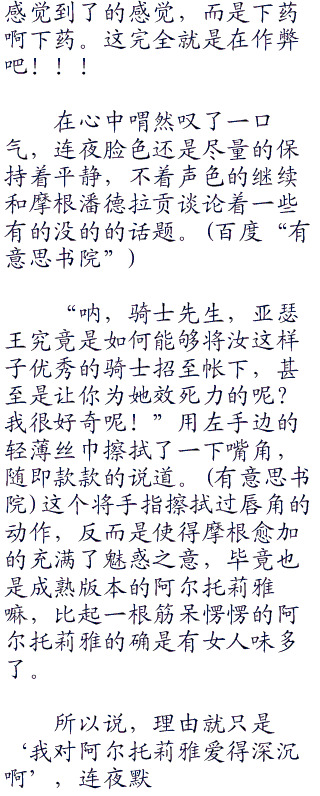 感觉到了的感觉，而是下药
啊下药。这完全就是在作弊
吧！！！
在心中喟然叹了一口
气，连夜脸色还是尽量的保
持着平静，不着声色的继续
和摩根潘德拉贡谈论着一些
有的没的的话题。(百度“有
意思书院”)
“呐，骑士先生，亚瑟
王究竟是如何能够将汝这样
子优秀的骑士招至帐下，甚
至是让你为她效死力的呢？
我很好奇呢！”用左手边的
轻薄丝巾擦拭了一下嘴角，
随即款款的说道。(有意思书
院)这个将手指擦拭过唇角的
动作，反而是使得摩根愈加
的充满了魅惑之意，毕竟也
是成熟版本的阿尔托莉雅
嘛，比起一根筋呆愣愣的阿
尔托莉雅的确是有女人味多
了。
所以说，理由就只是
‘我对阿尔托莉雅爱得深沉
啊’，连夜默